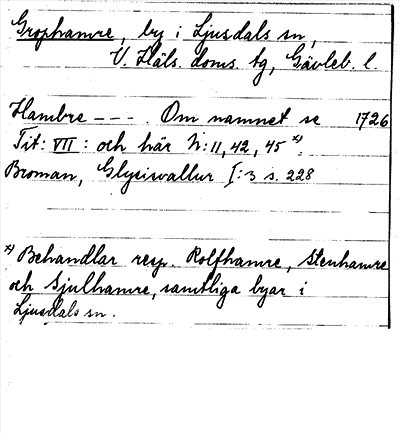 Grophamre, by i Ljusdals sn,
V. Häls. doms. tg, Gävleb. l.
Hambre - - - . Om namnet se 1726
Tit: VII: och här N: 11, 42, 45 x).
Broman, Glysisvallur I:3 s. 228
x) Behandlar resp. Rolfhamre, Stenhamre
och Sjulhamre, samtliga byar i
Ljusdals sn.